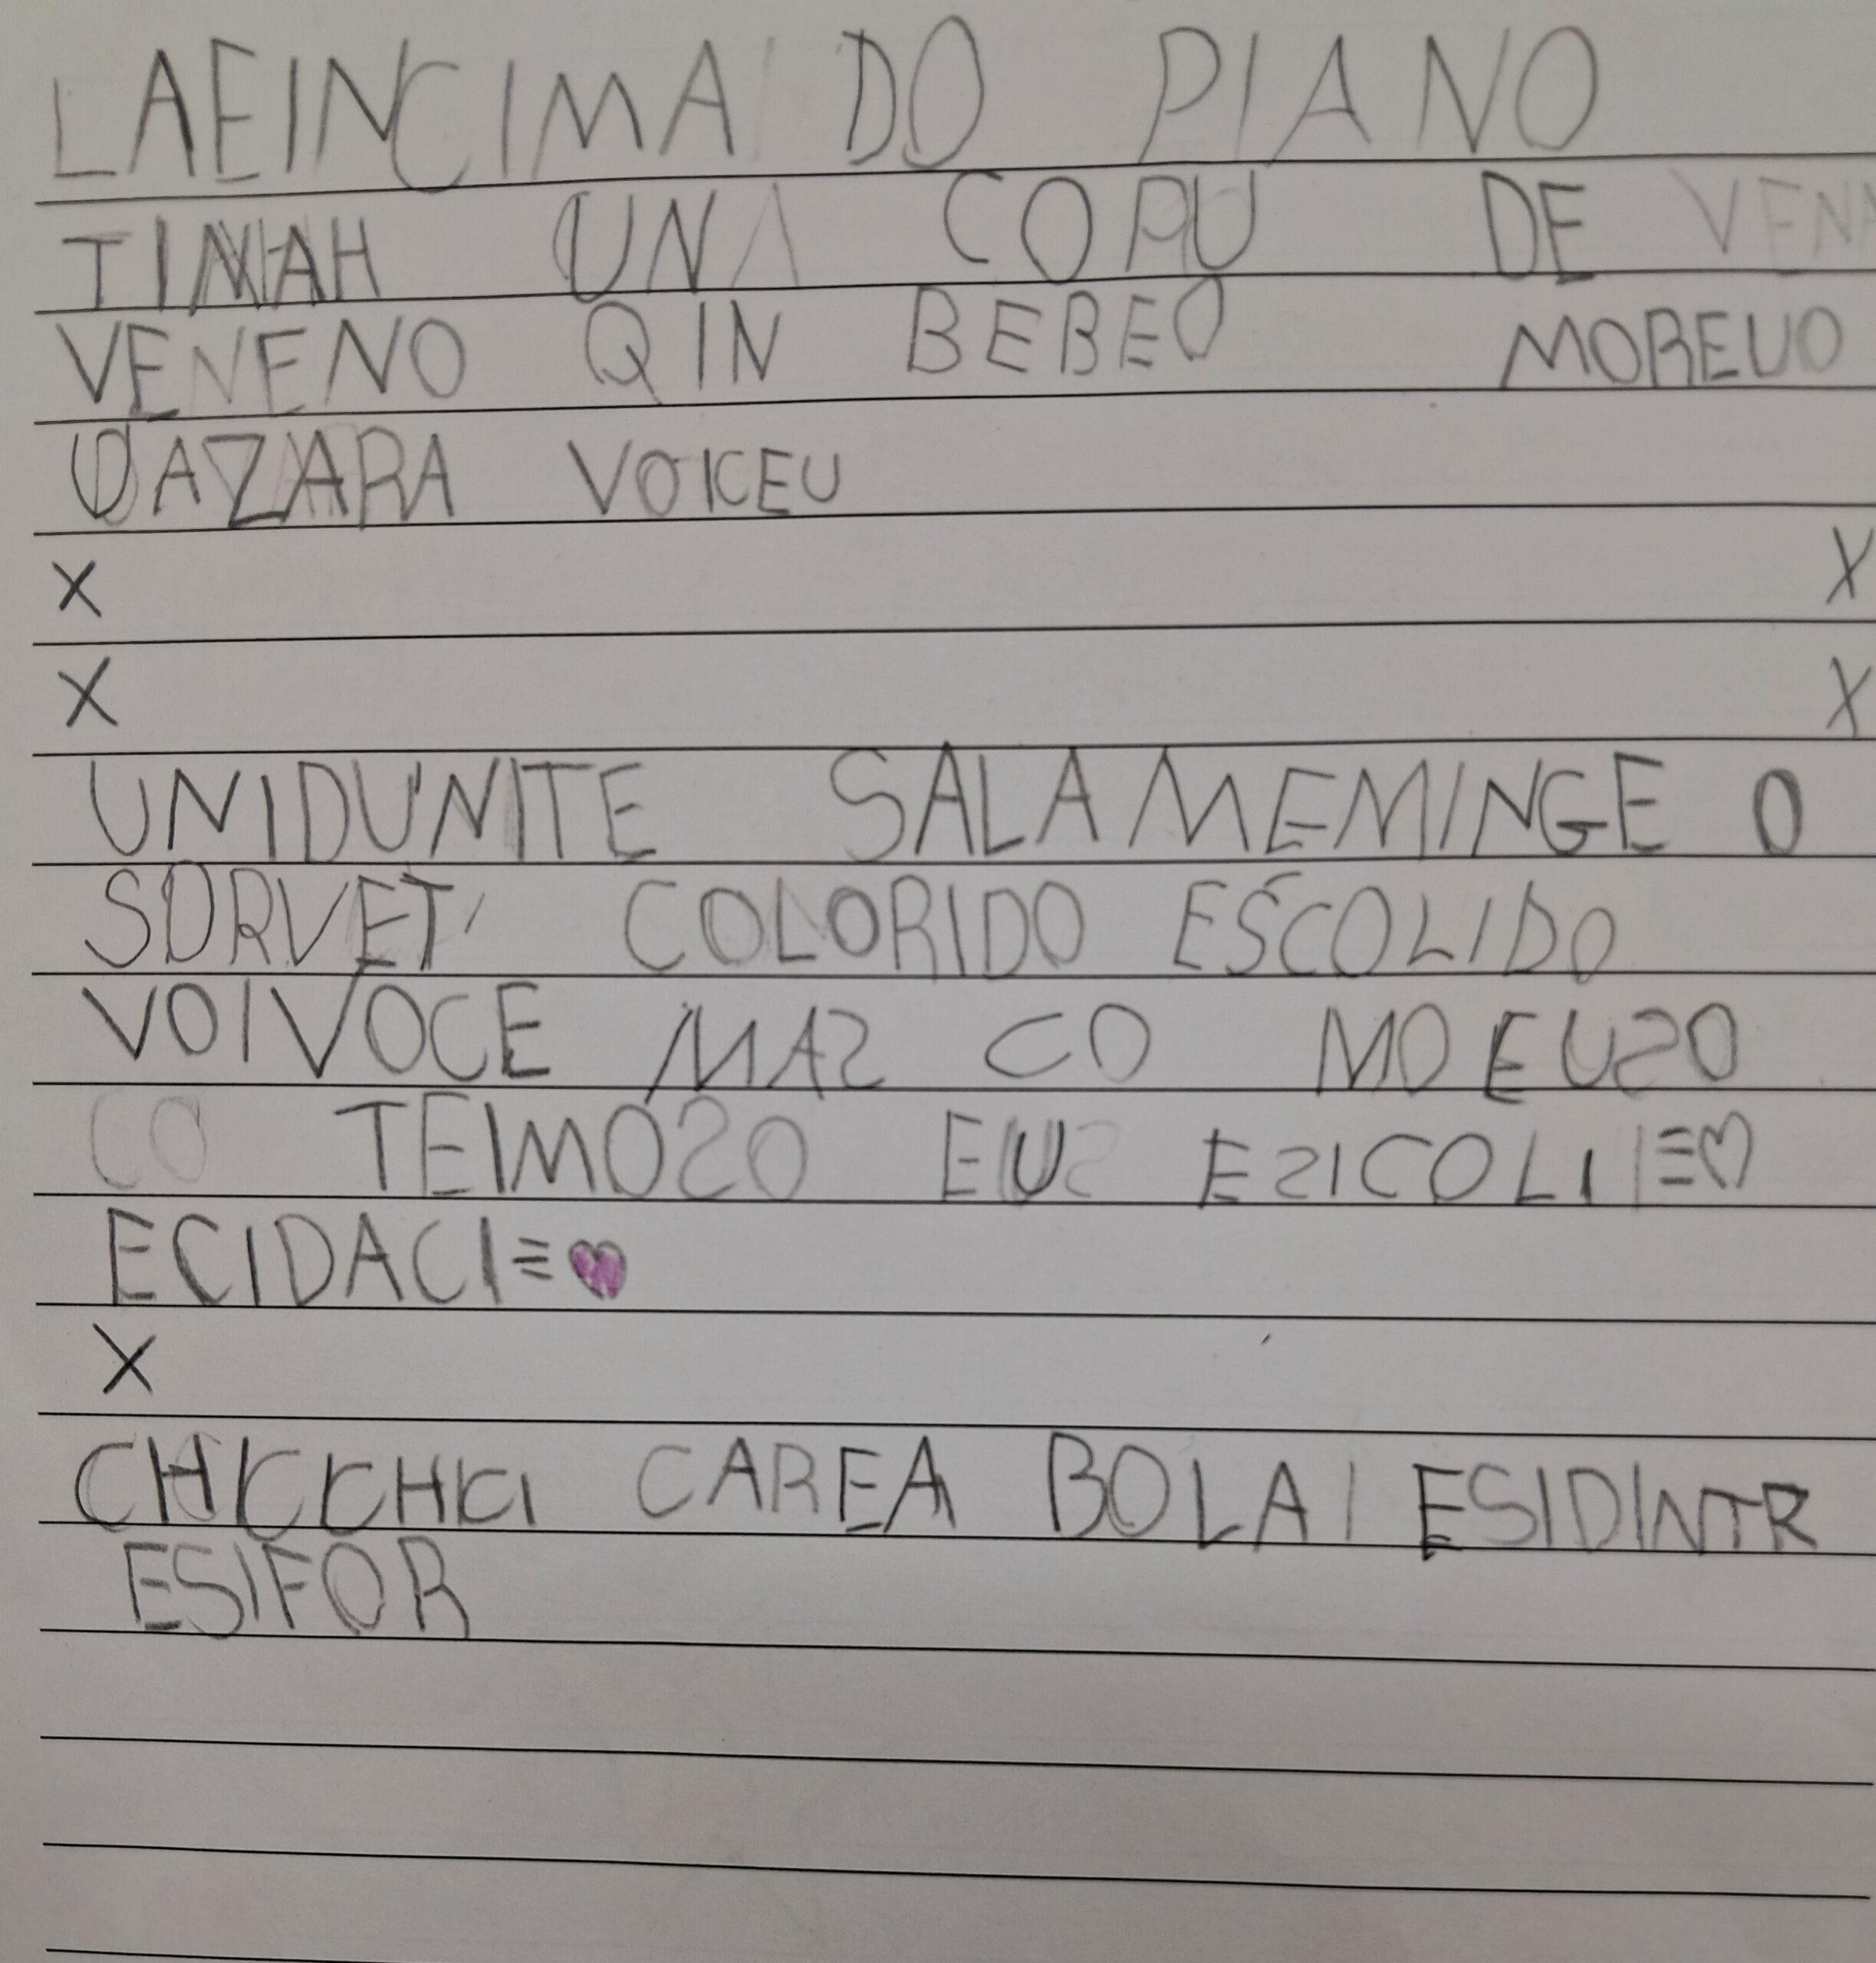 LAEINCIMA DO PIANO
TINHAH UNA COPU DE VEN
VENENO QIN BEBEO MOREUO
OAZARA VOICEU
X X
X X
UNIDUNITE SALAMEMINGE O
SORVET COLORIDO ESCOLIDO
VOIVOCE MAS CO MO EUSO
CO TEIMOSO EUS ESICOLI
ECIDACI
X
CAREA BOLA I ESIDINTR
ESIFOR